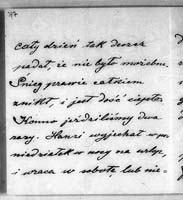 cały dzień tak deszcz
padał, że nie było możebne.
Śnieg prawie całkiem
znikł, i jest dość ciepło.
Konno jeździliśmy dwa
razy. Henri wyjechał w po-
niedziałek w nocy na urlop,
i wraca w sobotę lub nie-